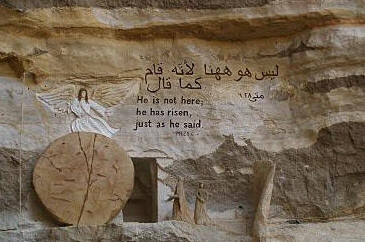 ليس هو ههنا لأنه قام
كما قال
متى ٢٨:٦
He is not here;
he has risen,
just as he said.